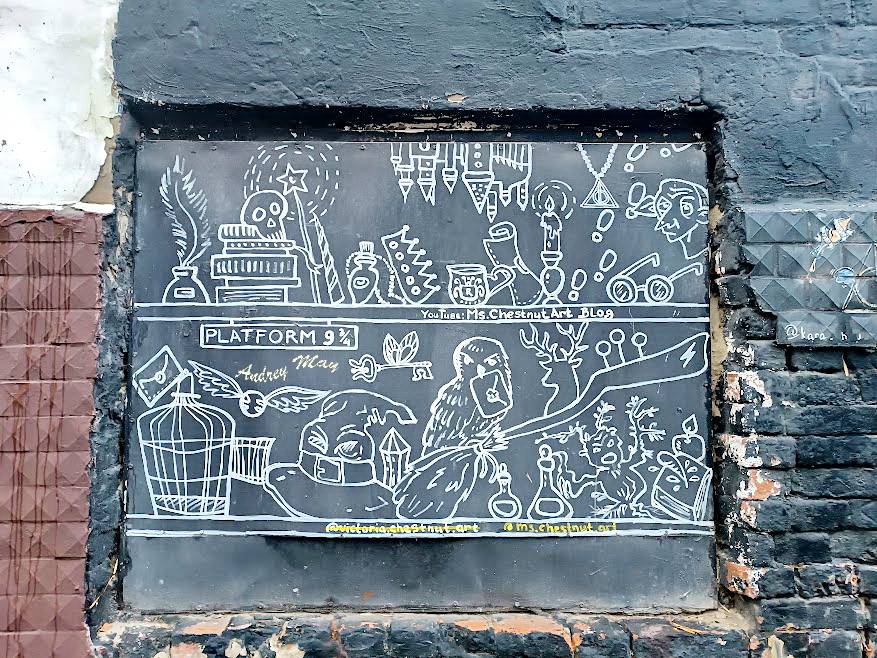 YouTube: Ms.ChestnutArt Blog
PLATFORM 9 ¾
Audrey May
@victoria.chestnut.art
@ms.chestnut.art